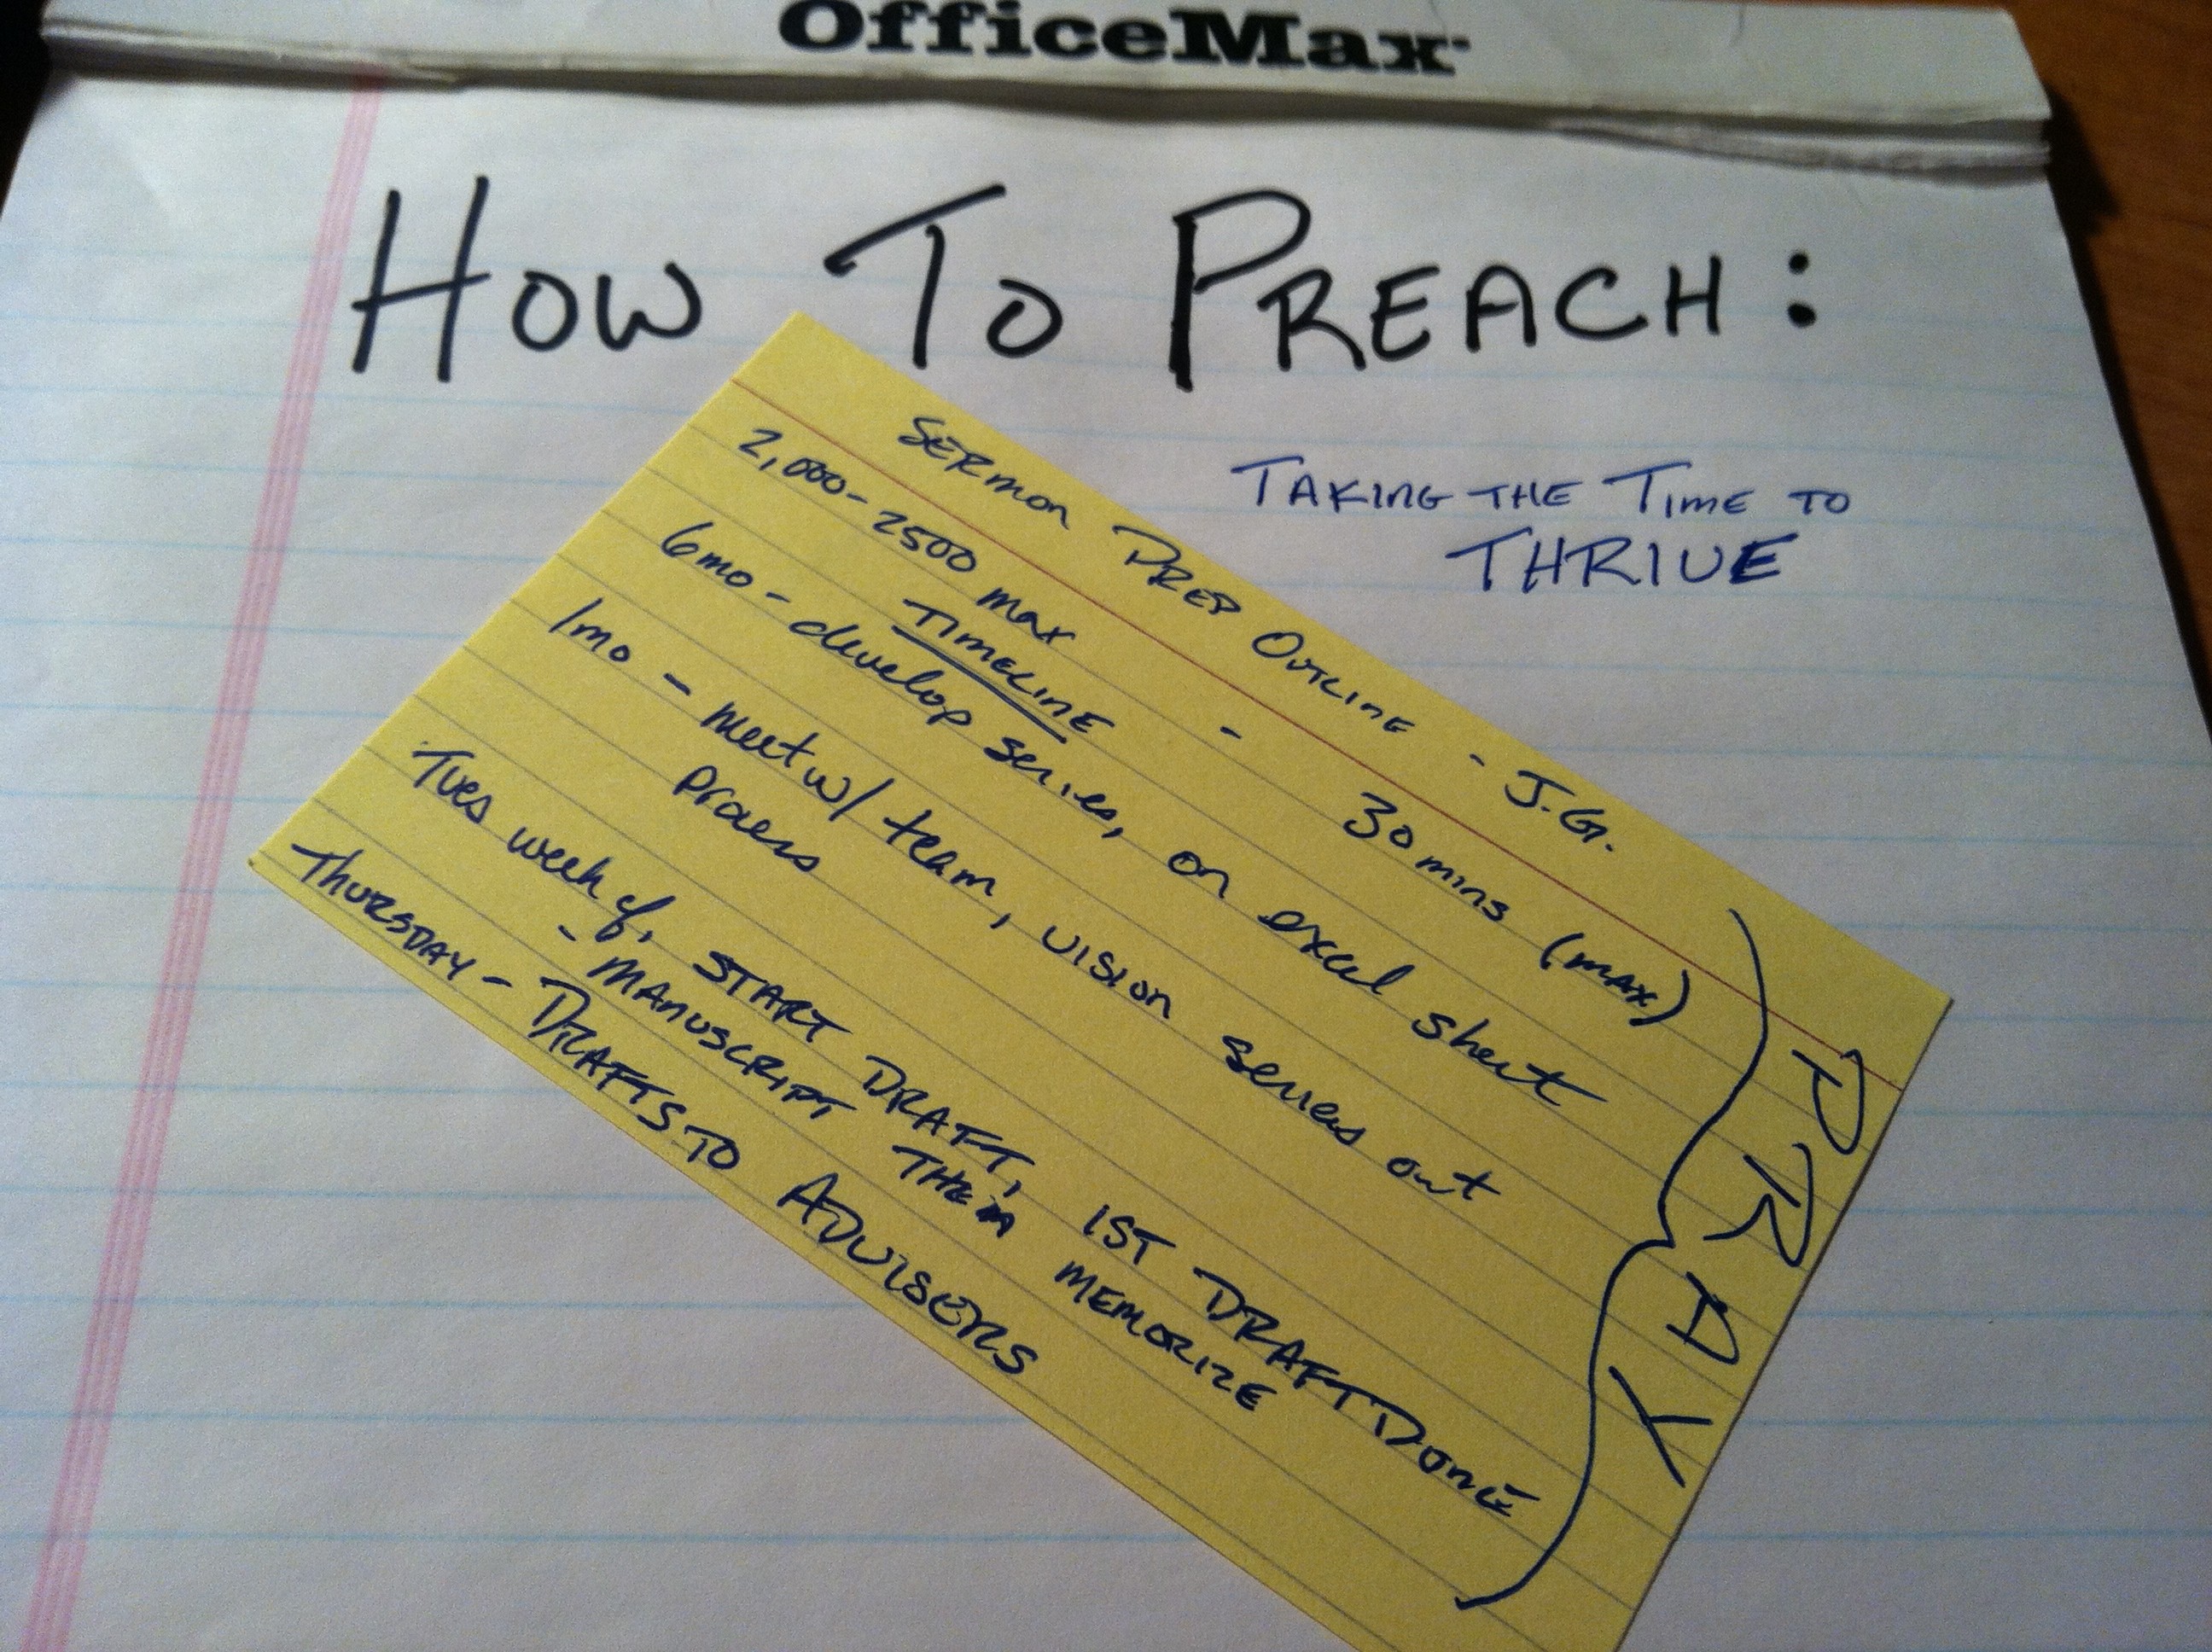 OfficeMax
HOW TO PREACH:
TAKING THE TIME TO
THRIVE
SERMON PREP OUTLINE - J.G.
2,000-2500 max - 30 mins (max)
TIMELINE
6mo - develop series, on excel sheet
1mo - meet w/ team, vision series out
process
Tues week of, START DRAFT, 1ST DRAFT DONE
- MANUSCRIPT THEN MEMORIZE
THURSDAY - DRAFTS TO ADVISERS
PRAY